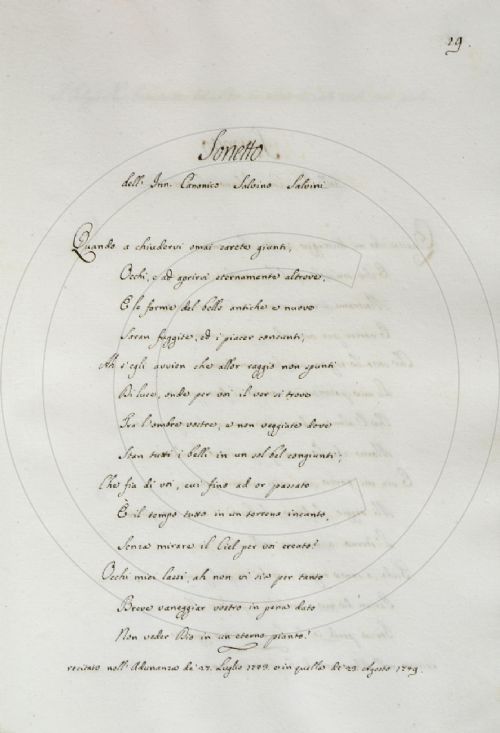 29.
Sonetto
dell' Inn. Canonico Salvino Salvini
Quando a chiudervi omai sarete giunti,
Occhi, e ad aprirvi eternamente altrove,
E le forme del bello antiche e nuove
Saran fuggite, ed i piacer consunti,
Ah s'egli avvien che allor raggio non spunti
Di luce, onde per voi il ver si trove
Fra l'ombre vostre, e non veggiate dove
Stan tutti i belli in un sol bel congiunti;
Che fia di voi, cui fino ad or passato
È il tempo tutto in un terreno incanto,
Senza mirare il Ciel per voi creato?
Occhi miei lassi, ah non vi sia per tanto
Breve vaneggiar vostro in pena dato
Non veder Dio in un eterno pianto!
recitato nell' Adunanza de' 27. Luglio e in quella de' 29. Agosto